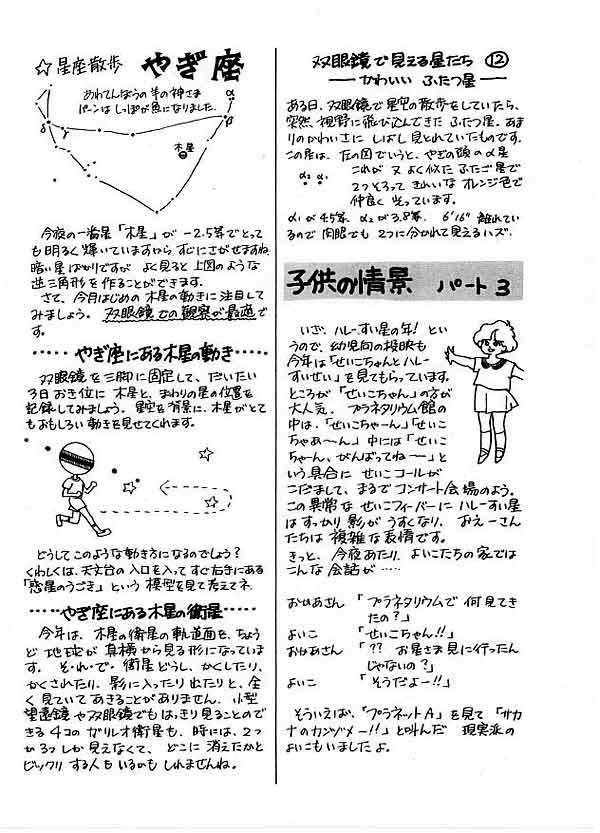 ☆星座散歩 やぎ座
あわてんぼうの羊の神さま
パーンは しっぽが魚になりました.
α
β
δ
木星
今夜の一番星「木星」が -2.5等でとって
も明るく輝いていますから すぐにさがせますね.
暗い星ばかりですが よく見ると上図のような
逆三角形を作ることができます。
さて、今月はじめの木星の動きに注目して
みましょう。双眼鏡での観察が最適で
す。
······やぎ座にある木星の動き······
双眼鏡を三脚に固定して、だいたい
3日おき位に木星と、まわりの星の位置を
記録してみましょう。星空を背景に、木星がとて
もおもしろい動きを見せてくれます。
どうしてこのような動き方になるのでしょう?
くわしくは、天文台の入口を入ってすぐ右手にある
「惑星のうごき」という模型を見て考えてネ.
·····やぎ座にある木星の衛星·····
今年は、木星の衛星の軌道面を、ちょう
ど地球が真横から見る形になっていま
す。 そ・れ・で・衛星どうし、かくしたり、
かくされたり、影に入ったり出たりと、全
く見ていてあきることがありません。小型
望遠鏡や双眼鏡でもはっきり見ることので
きる4つのガリレオ衛星も、時には、2つ
か3つしか見えなくて、どこに消えたかと
ビックリする人もいるのもしれませんね。
双眼鏡で見える星たち ⑫
── かわいい ふたつ星 ──
ある日、双眼鏡で星空の散歩をしていたら、
突然、視野に飛び込んできた ふたつ星。あま
りのかわいさに しばし見とれていたものです。
この星は、左の図でいうと、やぎの頭のα星
α₂ α₁
これが 又 よく似た ふたご星で
2つそろって きれいな オレンジ色で
仲良く 光っています。
α₁が4.5等、α₂が3.8等. 6'16" 離れてい
るので 肉眼でも 2つに分かれて見えるハズ.
子供の情景 パート3
いざ、ハレーすい星の年! とい
うので、幼児向の投映も
今年は「せいこちゃんとハレー
すいせい」を見てもらっています。
ところが「せいこちゃん」の方が
大人気. プラネタリウム館の
中は、「せいこちゃーん」「せいこ
ちゃあ〜ん」中には「せいこ
ちゃーん、がんばってねー」と
いう具合に せいこコールが
こだまして、まるで コンサート会場のよう。
この異常な せいこフィーバーに ハレーすい星
は すっかり 影が うすくなり、 おえーさん
たちは 複雑な表情です。
きっと、今夜あたり、よいこたちの家では
こんな会話が ·····
おかあさん 「プラネタリウムで 何見てき
たの?」
よいこ 「せいこちゃん!!」
おかあさん 「?? お星さま見に行ったん
じゃないの?」
よいこ 「そうだよー!!」
そういえば、「プラネットA」を見て「サカ
ナのカンヅメー!!」と叫んだ 現実派の
よいこもいましたよ。